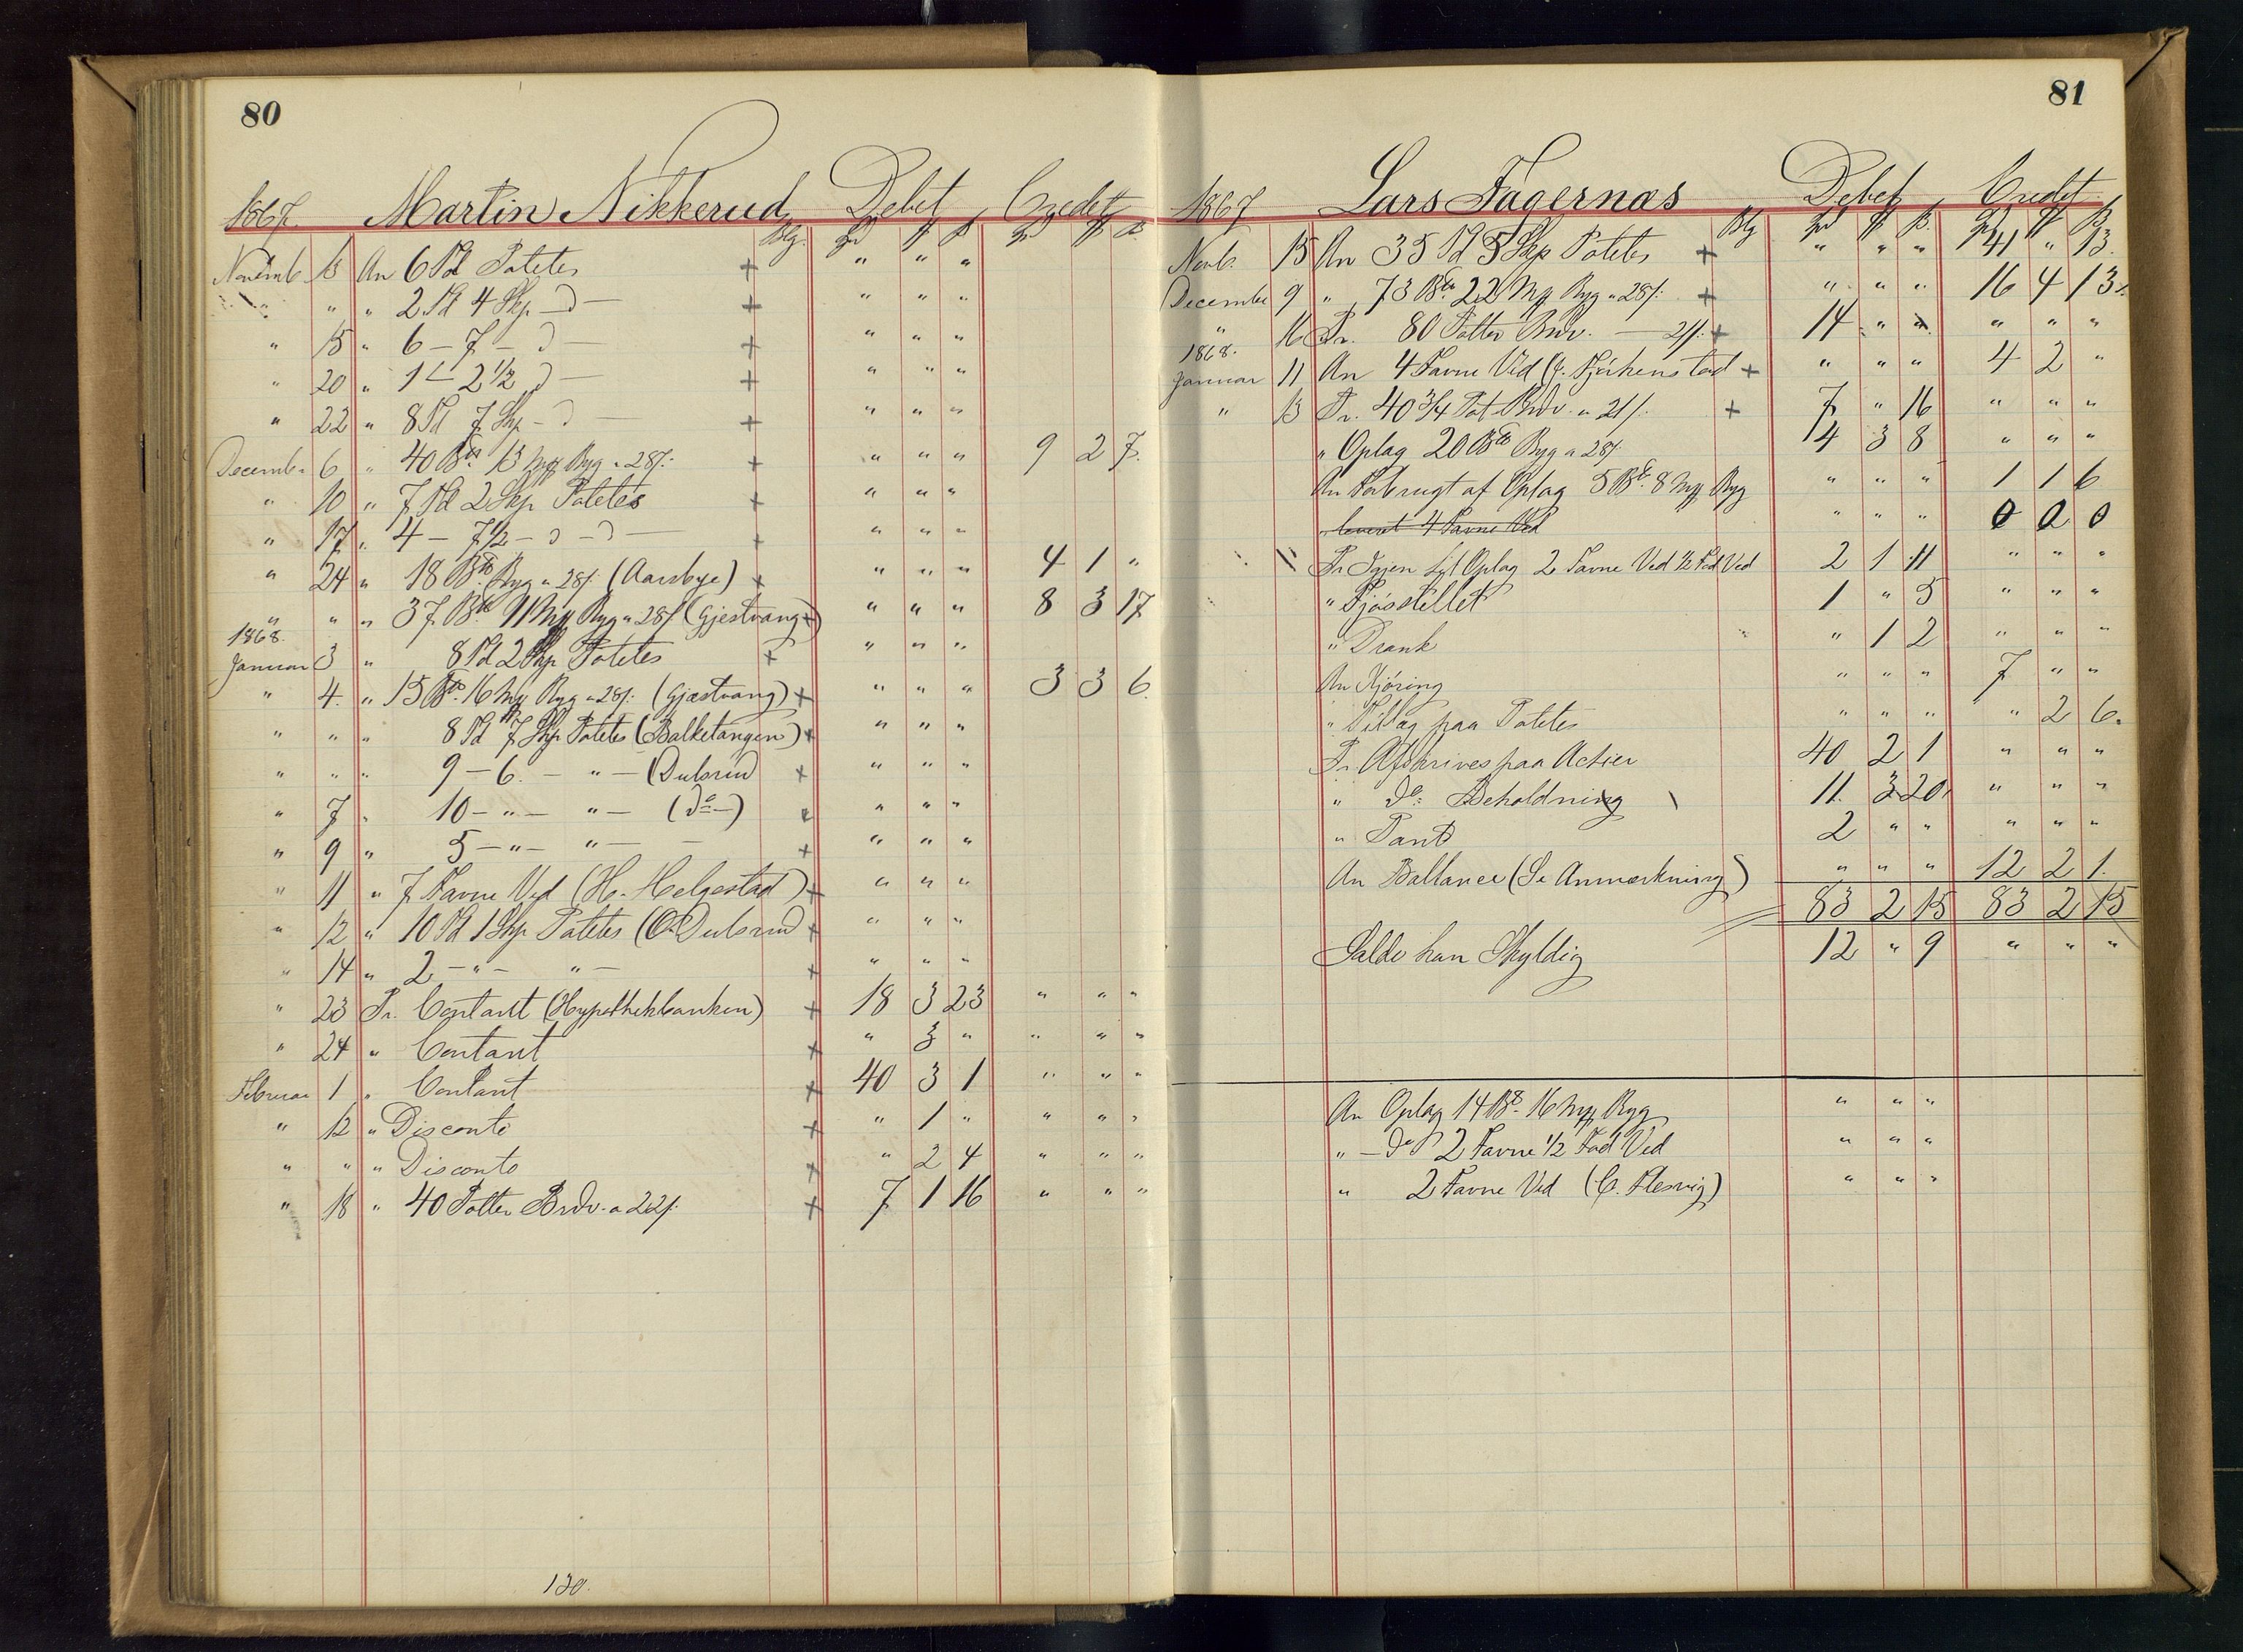 80
1867. Martin Nikkerud Blg. Debet Credet
Novemb. 13 An 6 Td Potetes + " " "
" " " 2 Td 4 Skp — d — + " " "
" 15 " 6 — 7 — d — + " " "
" 20 " 1 — 2 1/2 d — + " " "
" 22 " 8 Td 7 Skp — d — + " " "
Decemb. 6 " 40 13 Byg a 28 + " " " 9 2 7.
" 10 " 7 Td 2 Skp Potetes + " " "
" 17 " 4 — 7 1/2 — d — d — + " " "
" 24 " 18 Byg a 28 (Aarsbye) + " " " 4 1 "
" " " 37 11 Byg a 28 (Gjestvang) + " " " 8 3 17
1868.
Januar 3 " 8 Td 2 Skp Potetes + " " "
" 4. " 15 16 Byg a 28 (Gjæstvang) + " " " 3 3 6.
" " " 8 Td 7 Skp Potetes (Balketangen) + " " "
" " " 9 — 6. — " — (Dulsrud + " " "
" 7 " 10 — " — " — (do —) " " "
" 9 " 5 — " — " — — + " " "
" 11 " 7 Favne Ved (H. Helgestad) + " " "
" 12 " 10 Td 1 Skp Potetes (O. Dulsrud + " " "
" 14 " 2 — " — " — + " " "
" 23 Pr. Contant (Hypothekbanken) + 18 3 23 " " "
" 24 " Contant + " 3 " " " "
Februar 1 " Contant + 40 3 1 " " "
" 12 " Disconto + " 1 " " " "
" " " Disconto + " 2 4 " " "
" 18 " 40 Potter Brdv. a 22 + 7 1 16 " " "
130.
81
1867 Lars Fagernæs Blg Debet Credet
Novb. 15 An 35 Td 5 Skp Potetes + " " " 41 " 13.
December 9 " 73 22 Byg a 28 + " " " 16 4 13.
" 16 Pr. 80 Potter Brdv. — 21 + 14 " " " " "
1868.
Januar 11 An 4 Favne Ved + " " " 4 2 "
" 13 Pr. 40 3/4 Pot Brdv. a 21 + 7 " 16 " " "
" Oplag 20 Byg a 28 14 3 8 " " "
An Forbrugt af Oplag 5 8 Byg " " " 1 1 6
" leveret 4 Favne Ved " " " 0 0 0
Pr Igjen Oplag 2 Favne Ved 1/2 Fad Ved 2 1 11 " " "
" Fjøsstellet 1 " 5 " " "
" Drank " 1 2 " " "
An Kjøring " " " 7 " "
" Tillæg paa Potetes " " " " 2 6.
Pr. Afskrives paa Actier 40 2 1 " " "
" do Beholdning 11. 3 20 " " "
" Pant 2 " " " " "
An Ballance (Se Anmærkning) " " " 12 2 1.
83 2 15 83 2 15
Saldo han Skyldig 12 " 9 " " "
An Oplag 14 16 Byg " " "
" — do 2 Favne 1/2 Fad Ved " " "
" 2 Favne Ved " " "